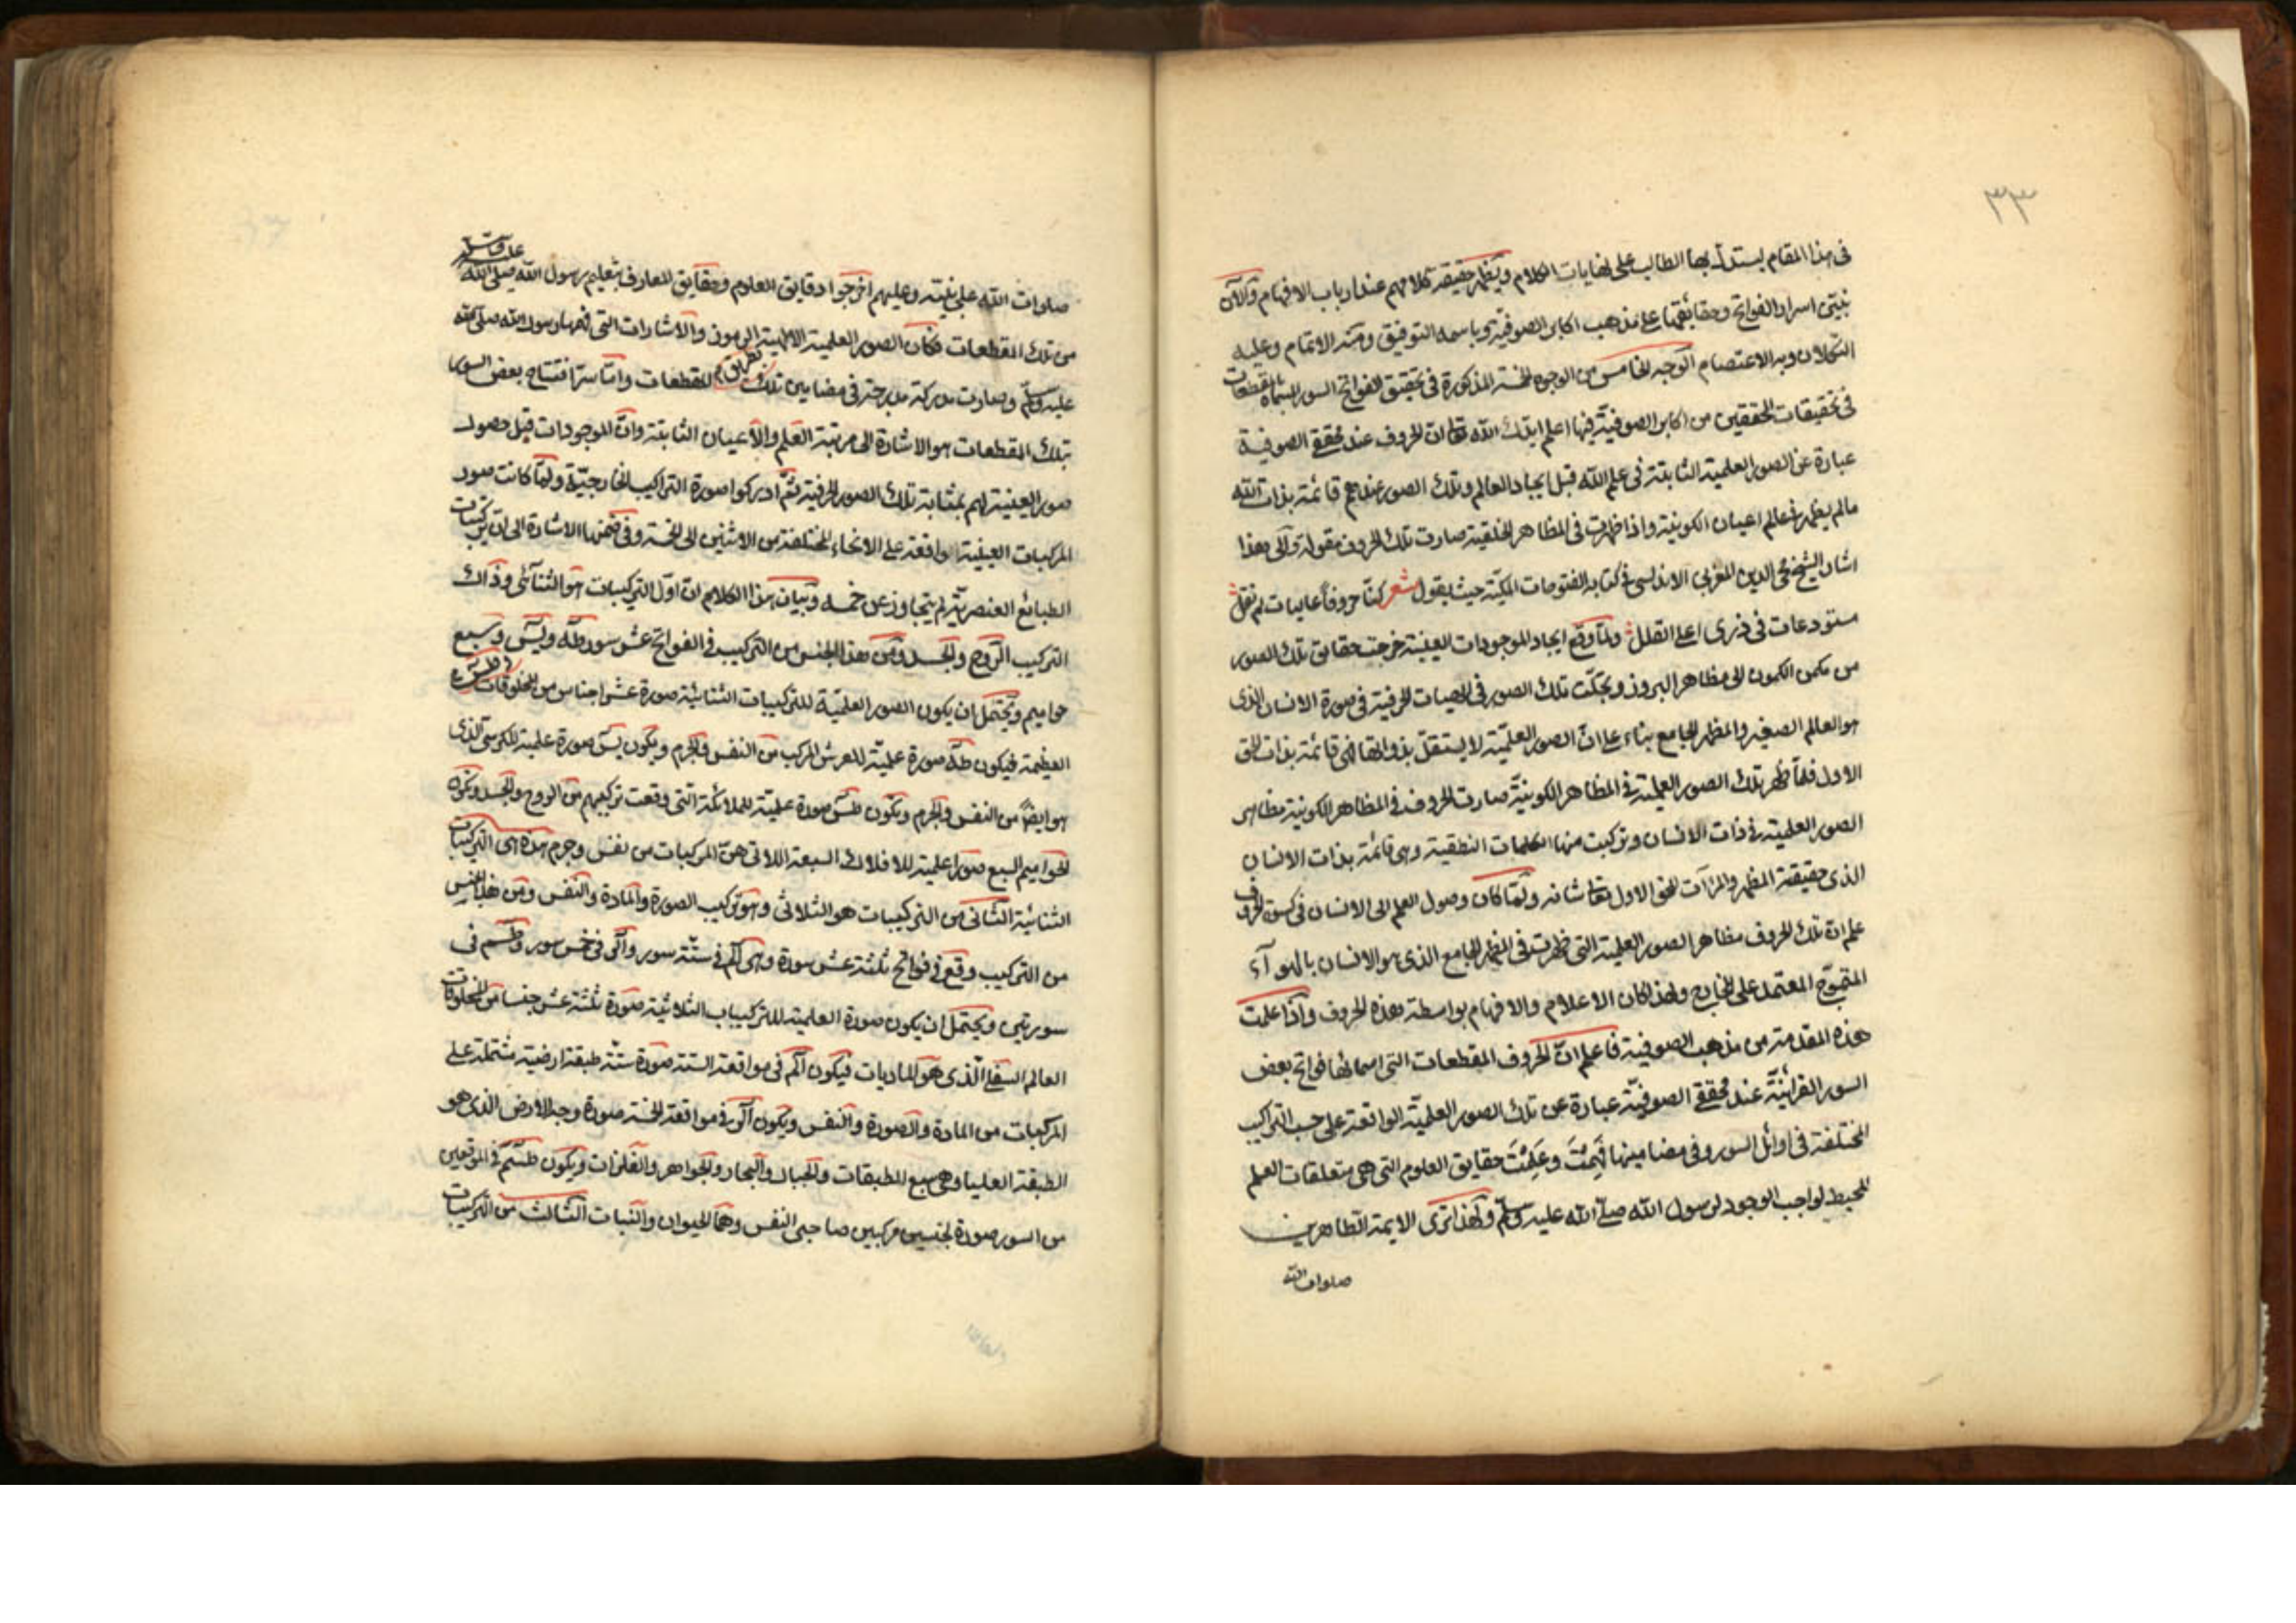 ٣٣
فى هذا المقام ليستدل بها الطالب على نهايات الكلام ويظهر حقيقة كلامهم عند ارباب الافهام والآن
نبيّن اسرار الفواتح وحقائقها على مذهب اكابر الصوفيّة وباسمه التوفيق ومنه الاتمام وعليه
التكلان وبه الاعتصام الوجه الخامس من الوجوه الخمسة المذكورة فى تحقيق الفواتح السور المسماة بالمقطعات
فى تحقيقات المحققين من اكابر الصوفيّة فيها اعلم ايدك الله تعا ان الحروف عند محققى الصوفية
عبارة عن الصور العلمية الثابتة فى علم الله قبل ايجاد العالم وتلك الصور عندهم قائمة بذات الله
مالم يظهر فى عالم اعيان الكونية واذا ظهرت فى المظاهر الخلقية صارت تلك الحروف مقولة والى هذا
اشار الشيخ محى الدين المغربى الاندلسى فى كتابه الفتوحات المكيّة حيث يقول شعر كنّا حروفاً عاليات لم نقل
مستودعات فى ذرى اعلى القلل ولمّا وقع ايجاد الموجودات العينية خرجت حقايق تلك الصور
من مكمن الكمون الى مظاهر البروز وتجلّت تلك الصور فى الهيئات الحرفية فى صورة الانسان الذى
هو العالم الصغير والمظهر الجامع بناء على ان الصور العلميّة لا يستقلّ بذواتها فهى قائمة بذات الحق
الاول فلمّا ظهر تلك الصور العلمية فى المظاهر الكونيّة صارت الحروف فى المظاهر الكونية مظاهر
الصور العلمية فى ذات الانسان وتركبت منها الكلمات النطقية وهى قائمة بذات الانسان
الذى حقيقة المظهر والمرآت للحق الاول تعا شانه ولمّا كان وصول العلم الى الانسان فى كسوة الحروف
علم ان تلك الحروف مظاهر الصور العلمية التى ظهرت فى المظهر الجامع الذى هو الانسان بالهوآء
المتموّج المعتمد على المخارج ولهذا كان الاعلام والافهام بواسطة هذه الحروف واذا علمت
هذه المقدمة من مذهب الصوفية فاعلم انّ الحروف المقطعات التى اسمائها فواتح بعض
السور القرآنيّة عند محققى الصوفيّة عبارة عن تلك الصور العلميّة الواقعة على حسب التراكيب
المختلفة فى اوائل السور وفى مضامينها فُهِمَتْ وعُلِمَتْ حقايق العلوم التى هى متعلقات العلم
المحيط لواجب الوجود لرسول الله صلى الله عليه وسلّم ولهذا ترى الايمة الطاهرين
صلوات الله
صلوات الله على نبيّه وعليهم اخرجوا دقايق العلوم وحقايق المعارف بتعليم رسول الله صلى الله
من تلك المقطعات فكان الصور العلمية الالهية الرموز والاشارات التى فهمها رسول الله صلى الله
عليه وسلّم وصارت مدركة مدرجة فى مضامين تلك المقطعات وامّا سرّ افتتاح بعض السور
بتلك المقطعات هو الاشارة الى مرتبة العلم والاعيان الثابتة وانّ الموجودات قبل حصول
صور العينية لهم بمثابة تلك الصور الحرفية ثمّ ادركوا صورة التراكيب الخارجيّة ولمّا كانت صور
المركبات العينية الواقعة على الانحاء المختلفة من الاثنين الى الخمسة وفى ضمنها الاشارة الى ان تركيبات
الطبائع العنصرية لم يتجاوز عن خمسه وبيان هذا الكلام ان اوّل التركيبات هو الثنائى وذاك
التركيب الروح والجسد ومن هذا الجنس من التركيب فى الفواتح عشر سور طه ويس وسبع
حواميم ويحتمل ان يكون الصور العلميّة للتركيبات الثنائيّة صورة عشر اجناس من المخلوقات
العظيمة فيكون طه صورة علميّة للعرش المركب من النفس والجرم ويكون يس صورة علمية للكرسى الذى
هو ايضاً من النفس والجرم ويكون طس صورة علميّة للملائكة التى وقعت تركيبهم من الروح والجسد ويكون
الحواميم السبع صورا علمية للافلاك السبعة اللاتى هنّ المركبات من نفس وجرم هذه هى التركيبات
الثنائية الثانى من التركيبات هو الثلاثى وهو تركيب الصورة والمادة والنفس ومن هذا الجنس
من التركيب وقع فى فواتح ثلثة عشر سورة وهى الم فى ستّة سور والر فى خمس سور وطسم فى
سورتين ويحتمل ان يكون صورة العلمية للتركيبات الثلاثية صورة ثلثة عشر جنسا من المخلوقات
العالم السفلى الّذى هو الماديات فيكون الم فى مواقعه الستة صورة ستّة طبقة ارضية مشتملة على
المركبات من المادة والصورة والنفس ويكون الر فى مواقعه الخمسة صورة وجه الارض الذى هو
الطبقة العليا وهى سبع الطبقات والجبال والبحار والجواهر والفلزات ويكون طسم فى الموقعين
من السور صورة لجنسين مركبين صاحبى النفس وهما الحيوان والنبات الثالث من التركيبات